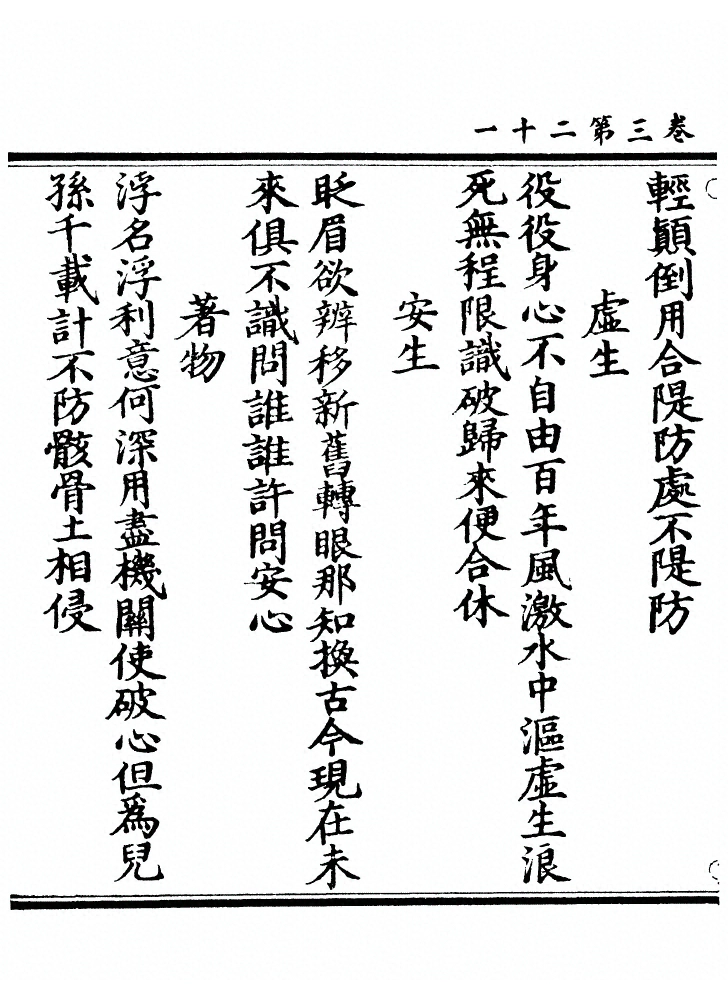 卷三第二十一
輕顛倒用合隄防處不隄防
虛生
役役身心不自由百年風激水中漚虛生浪
死無程限識破歸來便合休
安生
眨眉欲辨移新舊轉眼那知換古今現在未
來俱不識問誰誰許問安心
著物
浮名浮利意何深用盡機關使破心但為兒
孫千載計不防骸骨土相侵